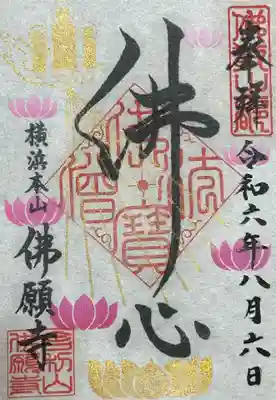 奉拝
令和六年八月六日
佛心
佛法僧寶
横浜本山
佛願寺